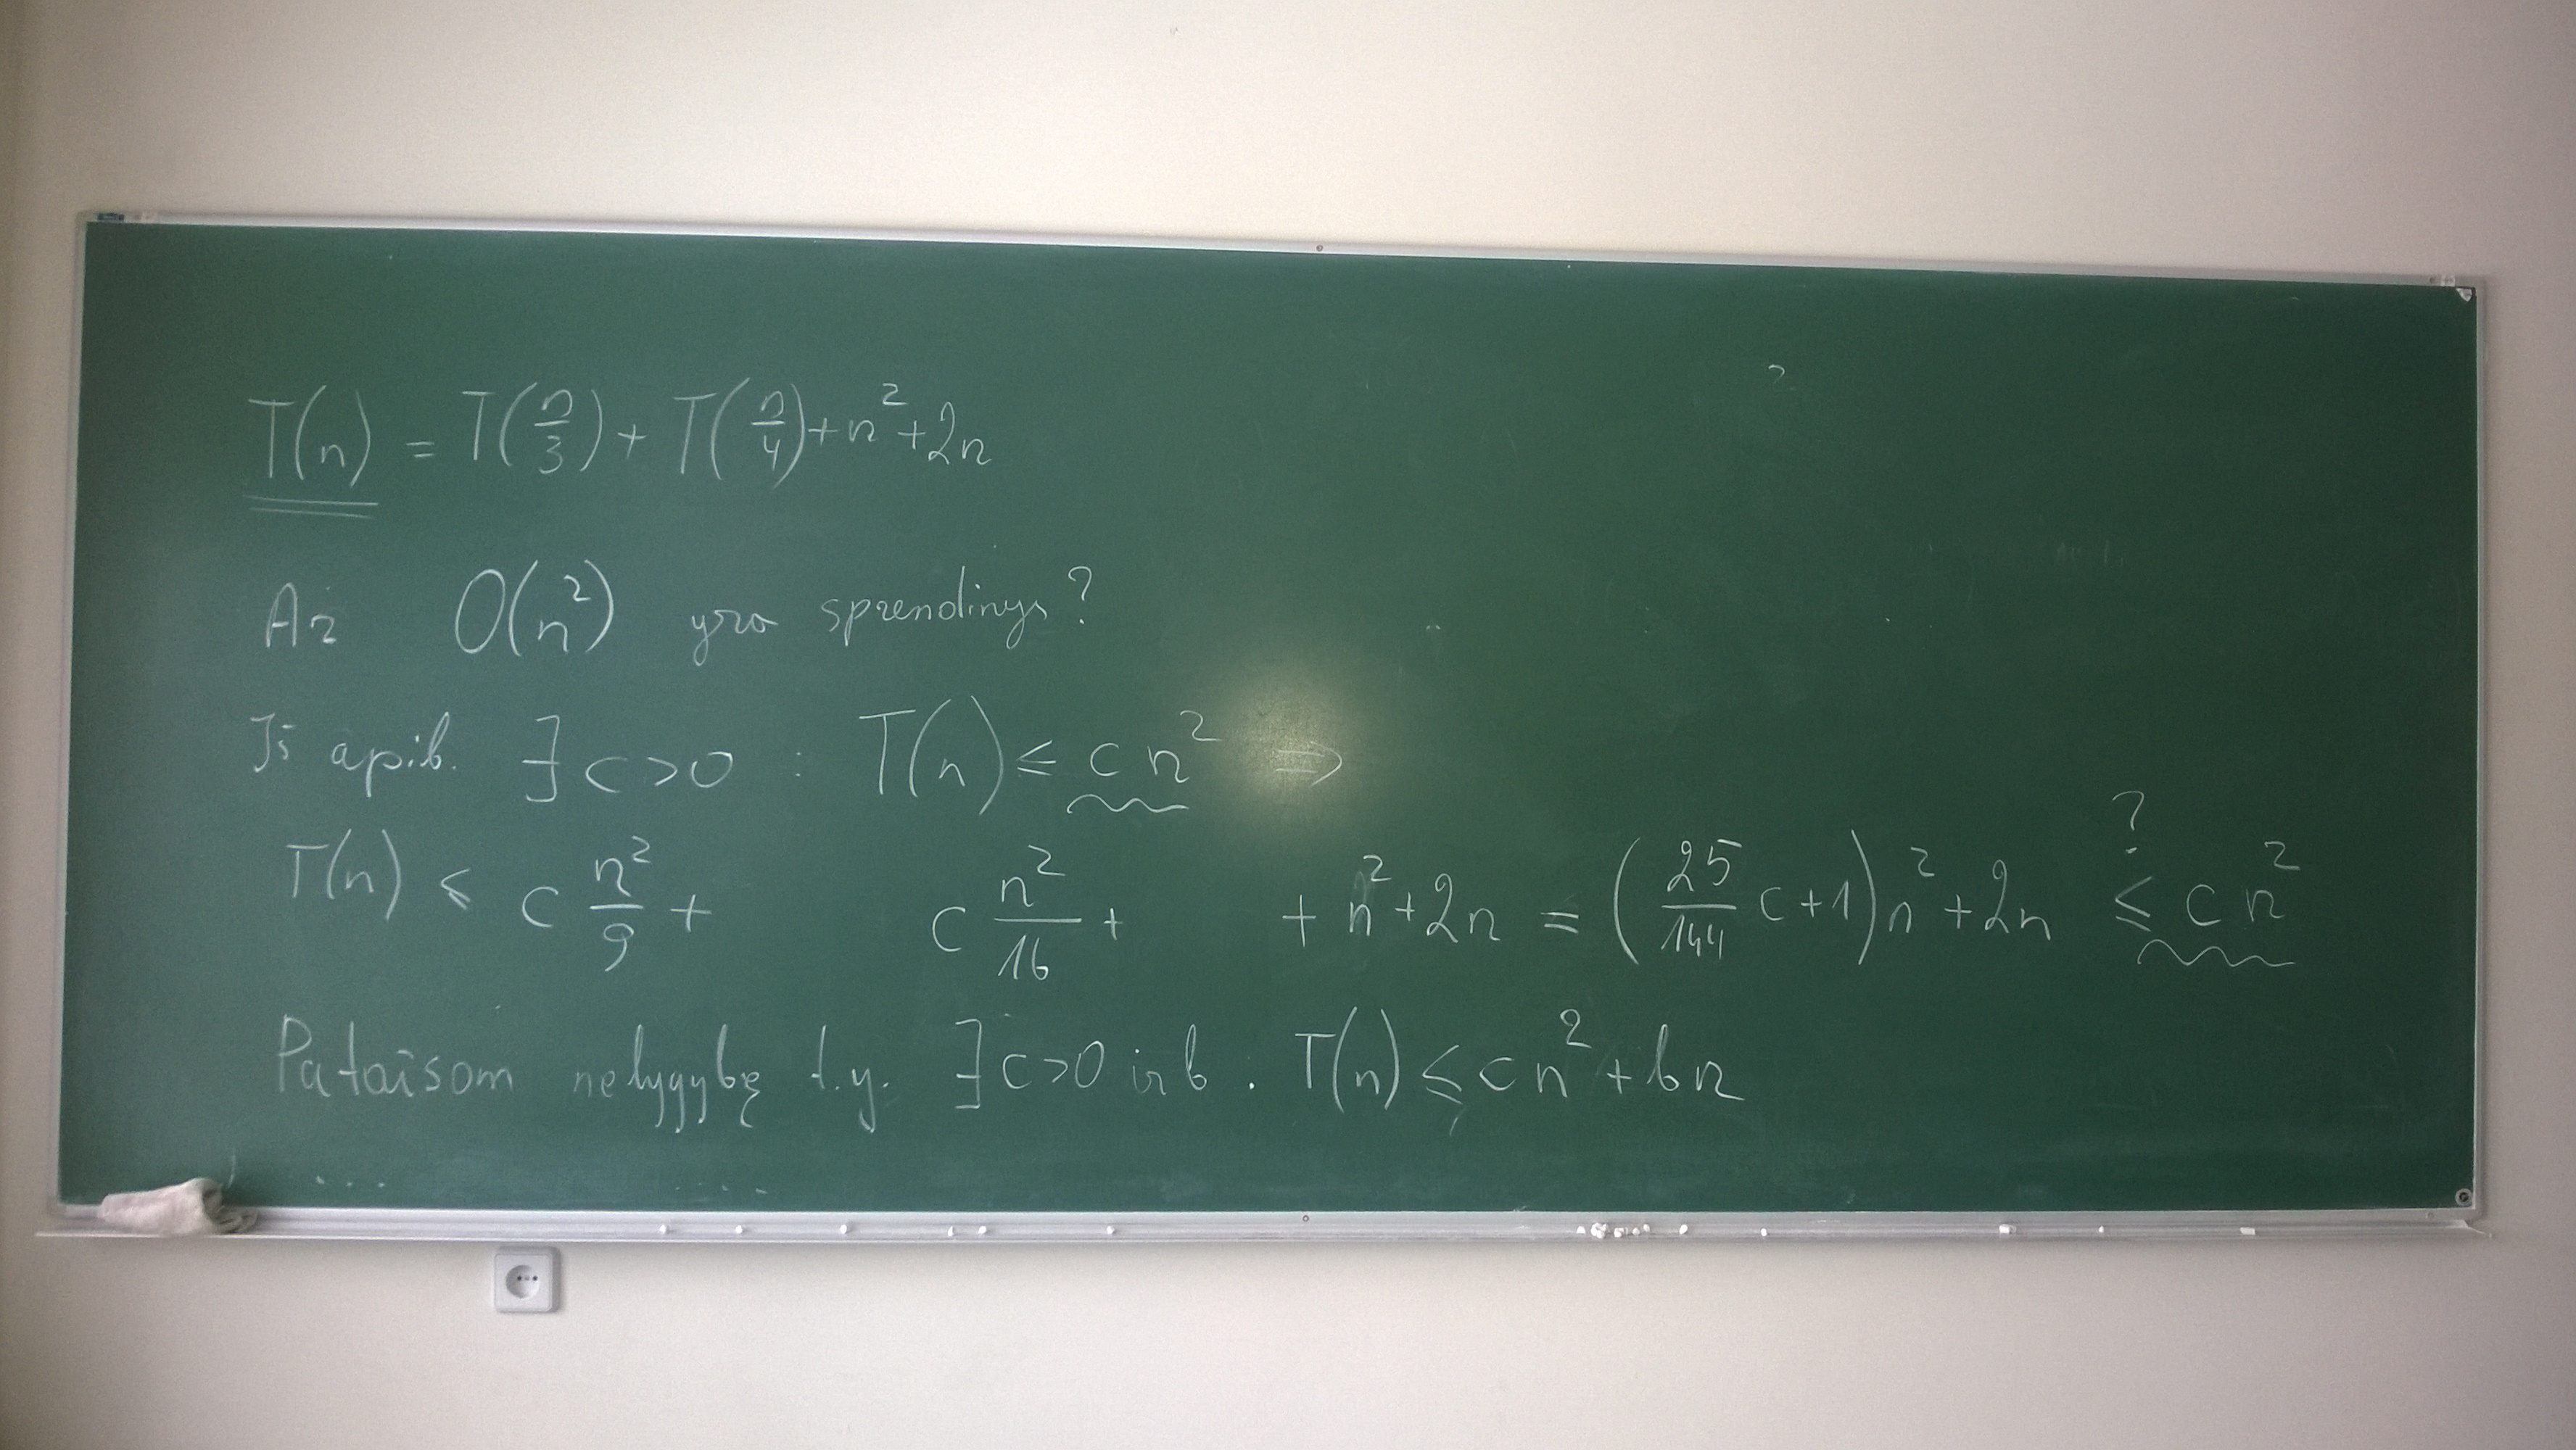 T(n) = T(n/3) + T(n/4) + n² + 2n
Ar O(n²) yra sprendinys?
Iš apib. ∃ c > 0 : T(n) ≤ c n² ⇒
T(n) ≤ c n²/9 + c n²/16 + + n² + 2n = (25/144 c + 1) n² + 2n ≤ c n² ?
Pataisom nelygybę t.y. ∃ c > 0 ir b . T(n) ≤ c n² + b n